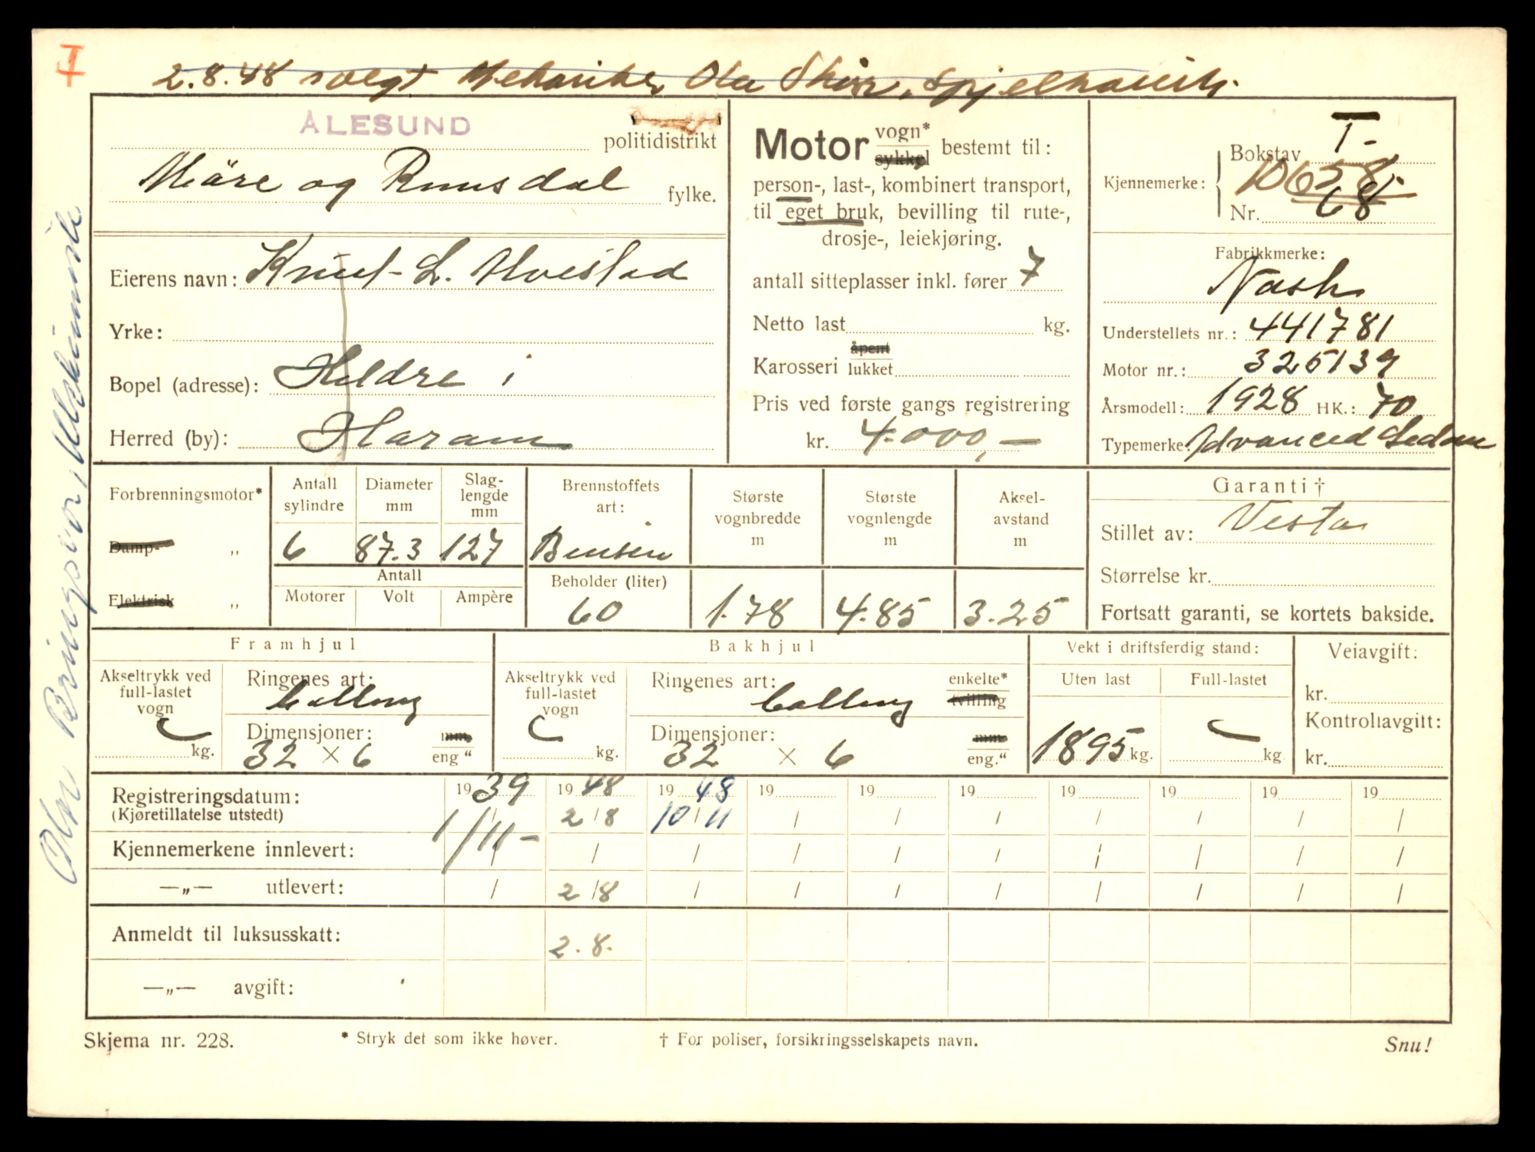 I
2.8.48 solgt Mekaniker Ola Skår, Spjelkavik.
ÅLESUND politidistrikt
Møre og Romsdal fylke.
Eierens navn: Knut L. Uvestad
Yrke:
Bopel (adresse): Hildre i
Herred (by): Haram
Motor vogn* sykkel bestemt til:
person-, last-, kombinert transport,
til eget bruk, bevilling til rute-,
drosje-, leiekjøring.
antall sitteplasser inkl. fører 7
Netto last kg.
Karosseri åpent lukket
Pris ved første gangs registrering
kr. 4.000,—
Kjennemerke: Bokstav T-
10658.
Nr. 68
Fabrikkmerke:
Nash
Understellets nr.: 441781
Motor nr.: 325139
Årsmodell: 1928 HK.: 70
Typemerke: Advanced Sedan
Forbrenningsmotor*
Damp- „
Elektrisk „
Antall sylindre 6
Diameter mm 87.3
Slaglengde mm 127
Antall
Motorer Volt Ampère
Brennstoffets art: Bensin
Beholder (liter) 60
Største vognbredde m 1.78
Største vognlengde m 4.85
Akselavstand m 3.25
Garanti †
Stillet av: Vesta
Størrelse kr.
Fortsatt garanti, se kortets bakside.
Framhjul
Akseltrykk ved full-lastet vogn kg.
Ringenes art: ballong
Dimensjoner: mm
32 × 6 eng "
Bakhjul
Akseltrykk ved full-lastet vogn kg.
Ringenes art: ballong enkelte* tvilling
Dimensjoner: mm
32 × 6 eng."
Vekt i driftsferdig stand:
Uten last Full-lastet
1895 kg. kg
Veiavgift:
kr.
Kontrollavgift:
kr.
Registreringsdatum: 1939 1948 1948 19 19 19 19 19 19 19
(Kjøretillatelse utstedt) 1/11- 2/8 10/11 / / / / / / /
Kjennemerkene innlevert: / / / / / / / / / /
—„— utlevert: / 2/8 / / / / / / / /
Anmeldt til luksusskatt: 2.8.
—„— avgift:
Skjema nr. 228.
* Stryk det som ikke høver.
† For poliser, forsikringsselskapets navn.
Snu!